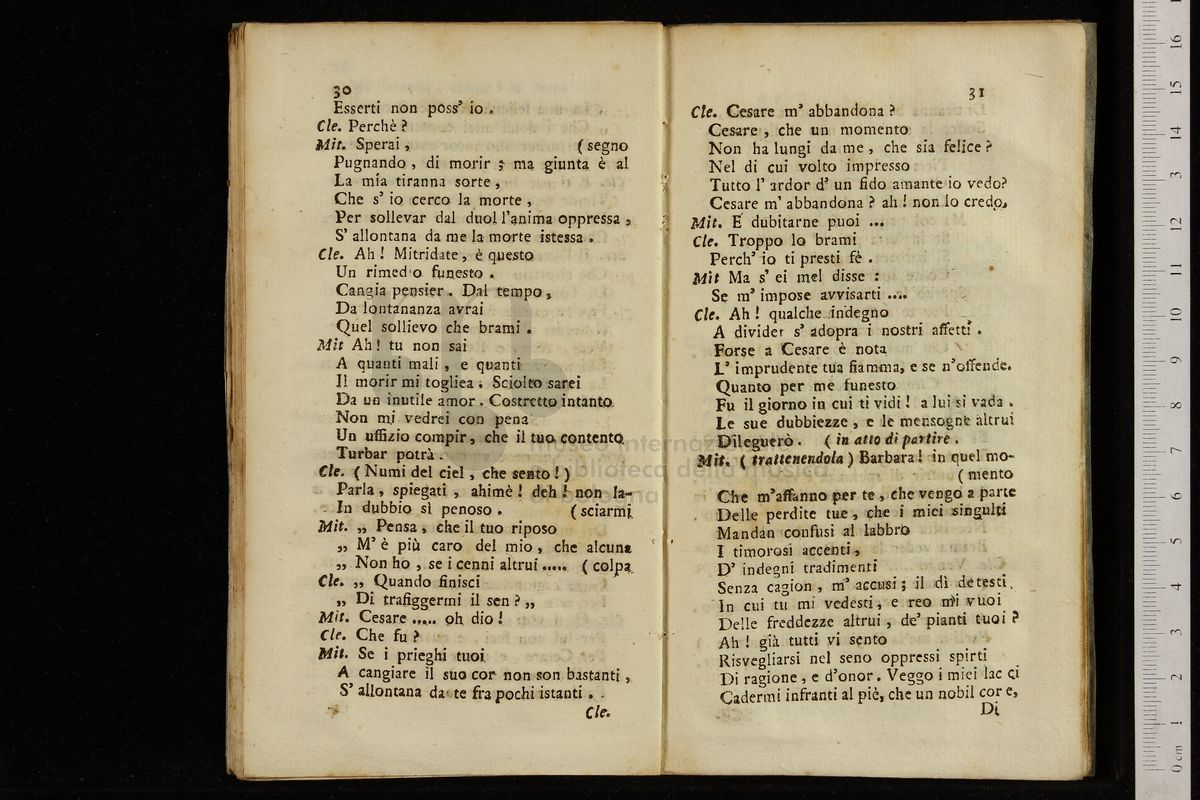 30
Esserti non poss' io.
Cle. Perchè?
Mit. Sperai, (segno
Pugnando, di morir; ma giunta è al
La mia tiranna sorte,
Che s' io cerco la morte,
Per sollevar dal duol l'anima oppressa,
S' allontana da me la morte istessa.
Cle. Ah! Mitridate, è questo
Un rimedio funesto.
Cangia pensier. Dal tempo,
Da lontananza avrai
Quel sollievo che brami.
Mit Ah! tu non sai
A quanti mali, e quanti
Il morir mi togliea. Sciolto sarei
Da un inutile amor. Costretto intanto
Non mi vedrei con pena
Un uffizio compir, che il tuo contento
Turbar potrà.
Cle. (Numi del ciel, che sento!)
Parla, spiegati, ahimè! deh! non la-
In dubbio sì penoso. (sciarmi
Mit. „ Pensa, che il tuo riposo
„ M' è più caro del mio, che alcuna
„ Non ho, se i cenni altrui ..... (colpa
Cle. „ Quando finisci
„ Di trafiggermi il sen? „
Mit. Cesare ..... oh dio!
Cle. Che fu?
Mit. Se i prieghi tuoi
A cangiare il suo cor non son bastanti,
S' allontana da te fra pochi istanti.
Cle.
31
Cle. Cesare m' abbandona?
Cesare, che un momento
Non ha lungi da me, che sia felice?
Nel di cui volto impresso
Tutto l' ardor d' un fido amante io vedo?
Cesare m' abbandona? ah! non lo credo.
Mit. E dubitarne puoi ...
Cle. Troppo lo brami
Perch' io ti presti fè.
Mit Ma s' ei mel disse:
Se m' impose avvisarti ....
Cle. Ah! qualche indegno
A divider s' adopra i nostri affetti.
Forse a Cesare è nota
L' imprudente tua fiamma, e se n'offende.
Quanto per me funesto
Fu il giorno in cui ti vidi! a lui si vada.
Le sue dubbiezze, e le mensogne altrui
Dileguerò. (in atto di partire.
Mit. (trattenendola) Barbara! in quel mo-
(mento
Che m'affanno per te, che vengo a parte
Delle perdite tue, che i miei singulti
Mandan confusi al labbro
I timorosi accenti,
D' indegni tradimenti
Senza cagion, m' accusi; il dì detesti
In cui tu mi vedesti, e reo mi vuoi
Delle freddezze altrui, de' pianti tuoi?
Ah! già tutti vi sento
Risvegliarsi nel seno oppressi spirti
Di ragione, e d'onor. Veggo i miei lacci
Cadermi infranti al piè, che un nobil core,
Di
museo internazionale
biblioteca della musica
di bologna
0 cm 1 2 3 4 5 6 7 8 9 10 11 12 13 14 15 16